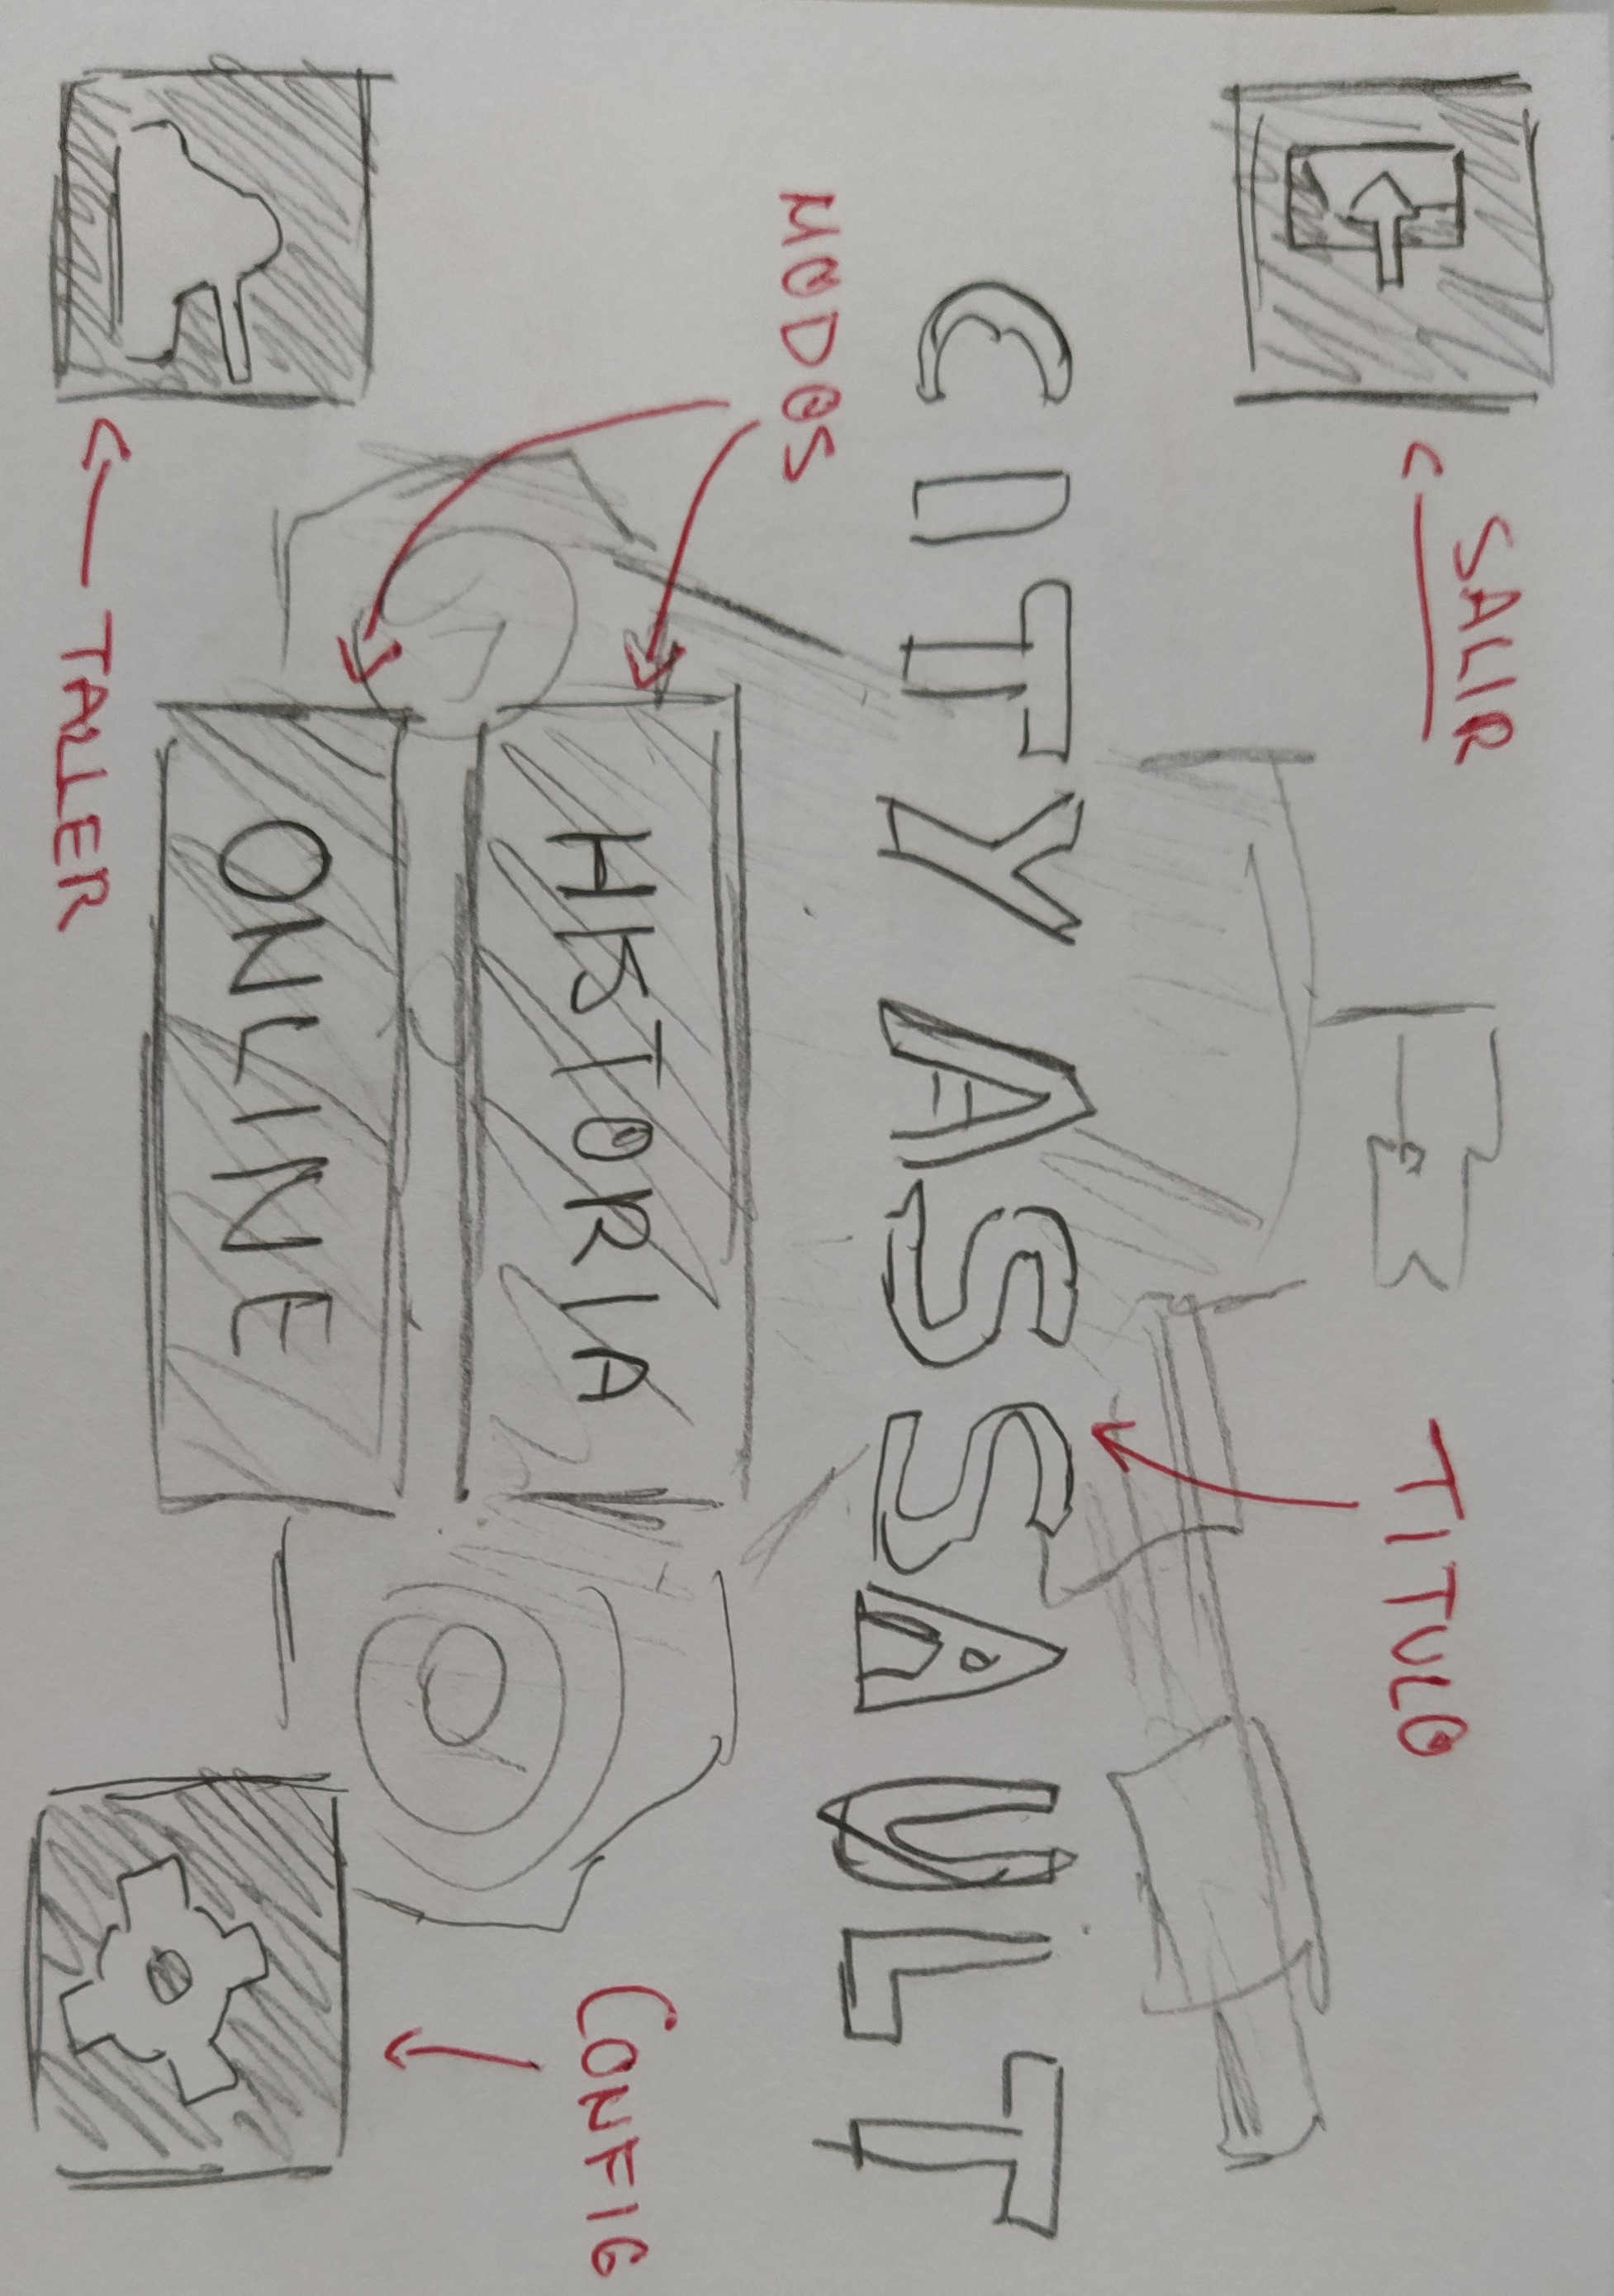 SALIR
TITULO
CITY ASSAULT
MODOS
HISTORIA
CONFIG
ONLINE
TALLER